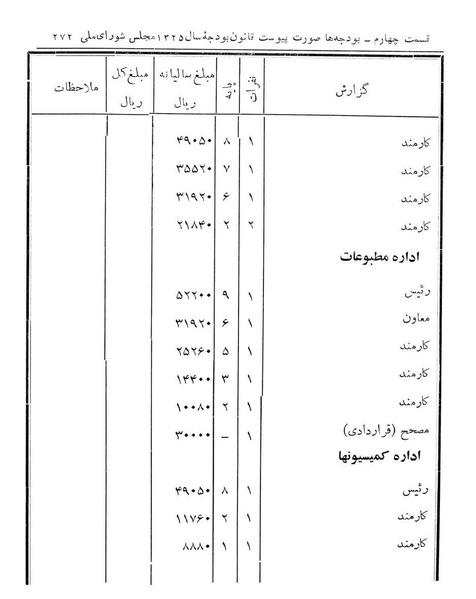 قسمت چهارم ـ بودجه‌ها صورت پیوست قانون بودجهٔ سال ۱۳۲۵ مجلس شورای‌ملی ۲۷۲
گزارش نفرات پایه مبلغ سالیانه ریال مبلغ کل ریال ملاحظات
کارمند ۱ ۸ ۴۹۰۵۰
کارمند ۱ ۷ ۳۵۵۲۰
کارمند ۱ ۶ ۳۱۹۲۰
کارمند ۲ ۲ ۲۱۸۴۰
اداره مطبوعات
رئیس ۱ ۹ ۵۲۲۰۰
معاون ۱ ۶ ۳۱۹۲۰
کارمند ۱ ۵ ۲۵۲۶۰
کارمند ۱ ۳ ۱۴۴۰۰
کارمند ۱ ۲ ۱۰۰۸۰
مصحح (قراردادی) ۱ – ۳۰۰۰۰
اداره کمیسیونها
رئیس ۱ ۸ ۴۹۰۵۰
کارمند ۱ ۲ ۱۱۷۶۰
کارمند ۱ ۱ ۸۸۸۰